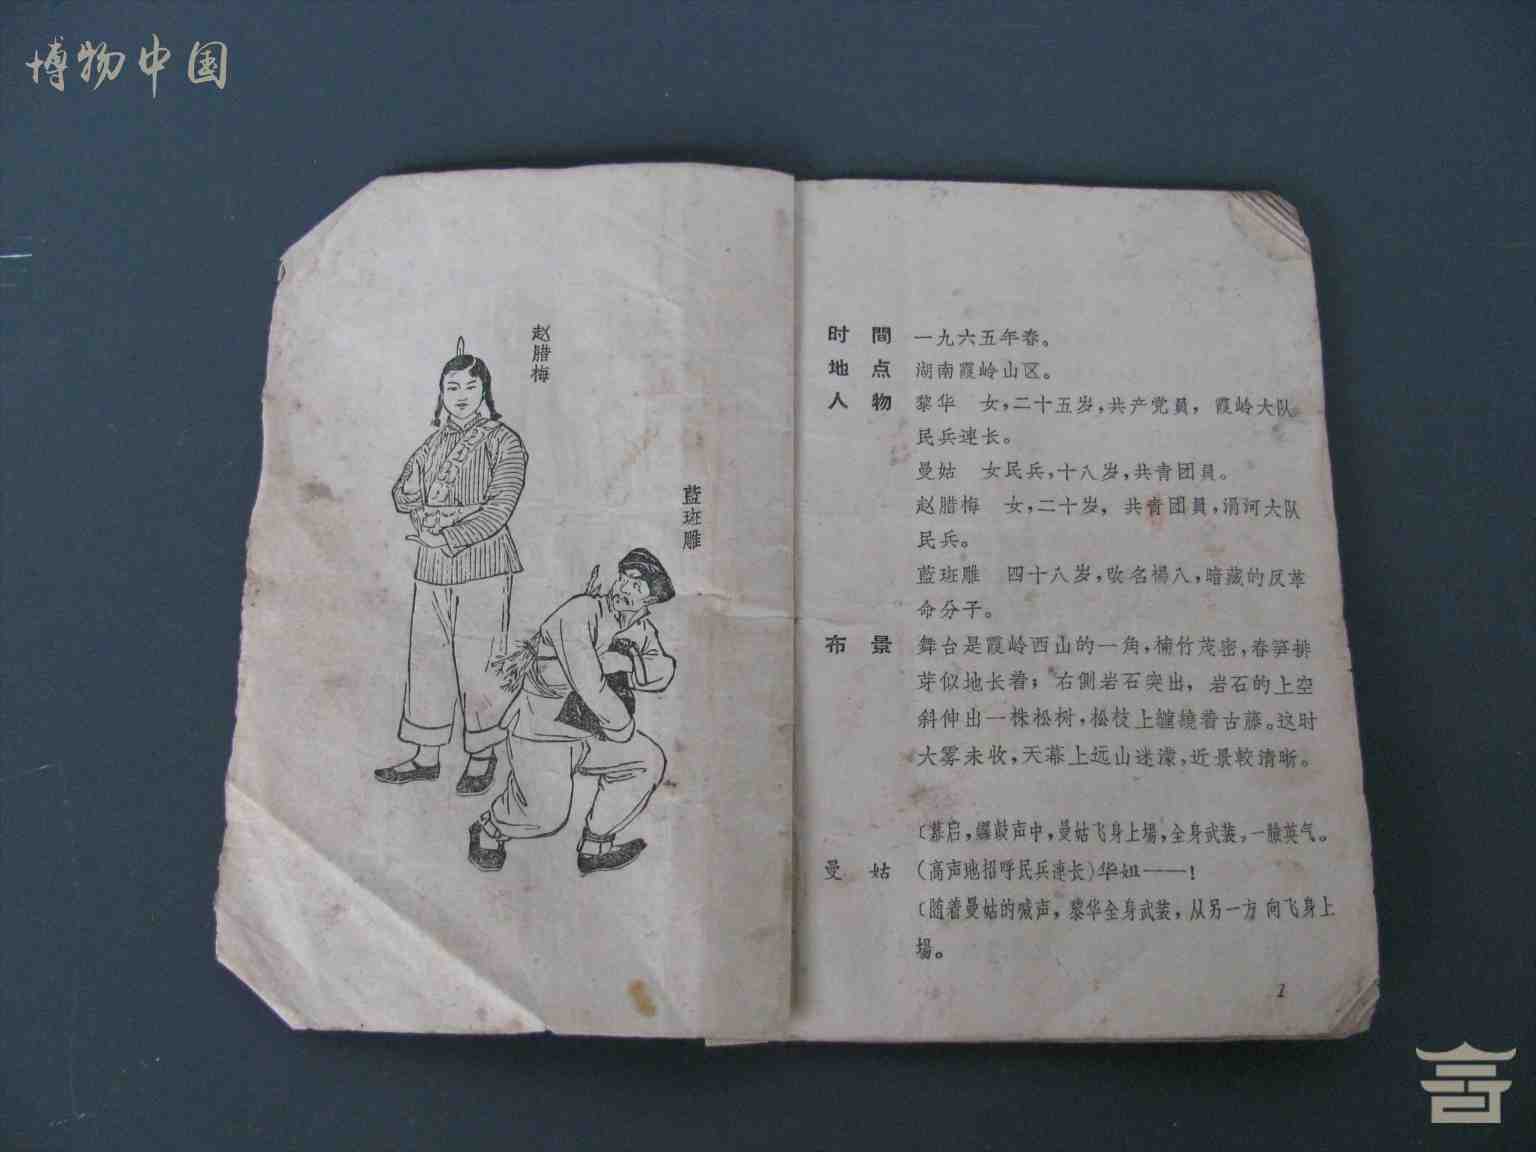 博物中国
赵腊梅
藍斑雕
时間 一九六五年春。
地点 湖南霞岭山区。
人物 黎华 女,二十五岁,共产党員,霞岭大队
民兵連长。
曼姑 女民兵,十八岁,共青团員。
赵腊梅 女,二十岁,共青团員,涓河大队
民兵。
藍斑雕 四十八岁,改名楊八,暗藏的反革
命分子。
布景 舞台是霞岭西山的一角,楠竹茂密,春笋排
芽似地长着;右側岩石突出,岩石的上空
斜伸出一株松树,松枝上纏繞着古藤。这时
大雾未收,天幕上远山迷濛,近景較清晰。
〔幕启,鑼鼓声中,曼姑飞身上場,全身武装,一臉英气。
曼姑 (高声地招呼民兵連长)华姐——!
〔随着曼姑的喊声,黎华全身武装,从另一方向飞身上
場。
1